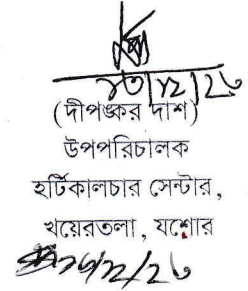 (দীপঙ্কর দাশ)
উপপরিচালক
হর্টিকালচার সেন্টার,
খয়েরতলা, যশোর